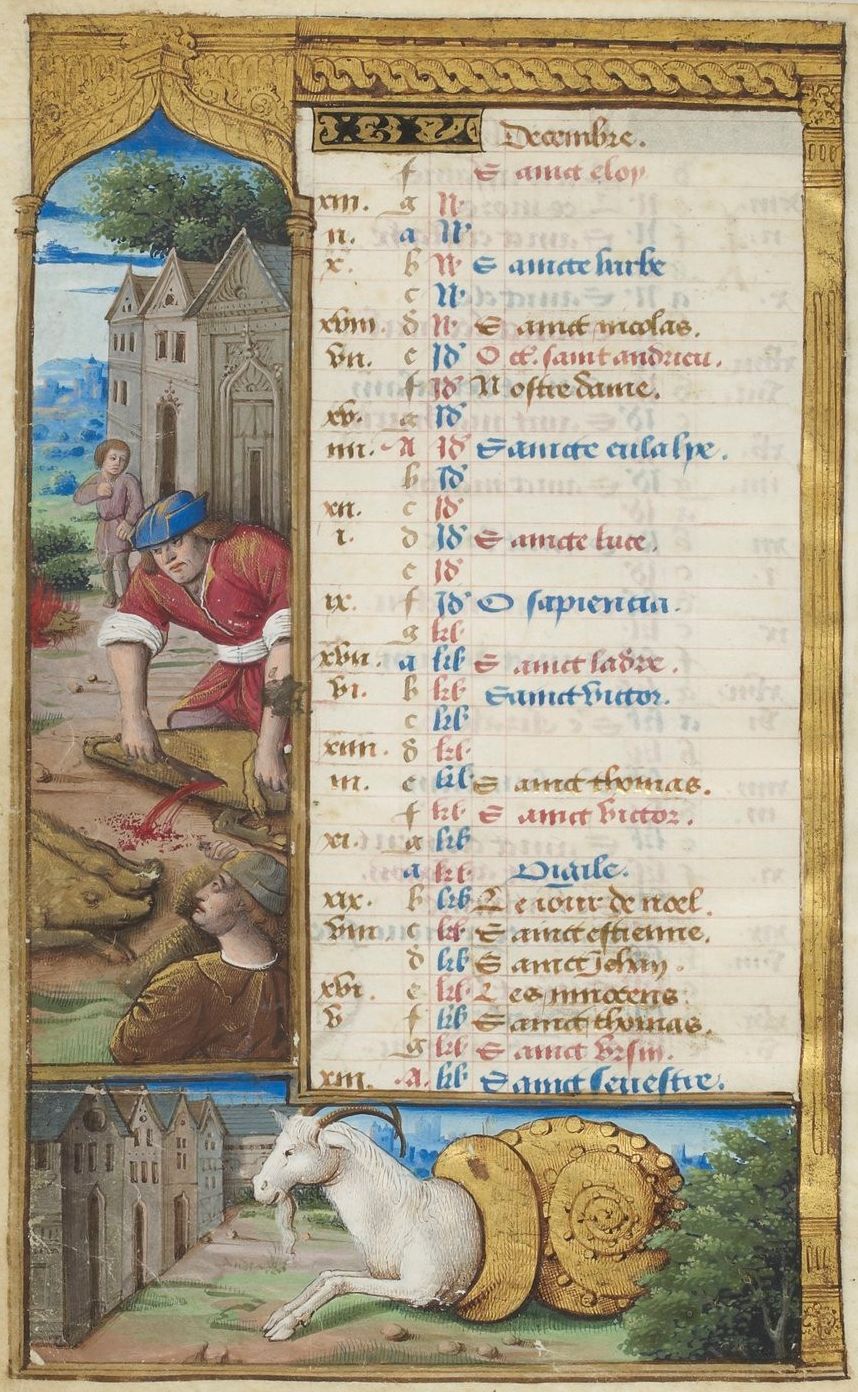 Decembre.
f Sainct eloy
xiii. g N
ii. a N
x. b N Saincte barbe
c N
xviii d N Sainct nicolas.
vii. e Id Oct. saint andrieu.
f Id Nostre dame.
xv. g Id
iiii. A Id Saincte eulalye.
b Id
xii. c Id
i. d Id Saincte luce.
e Id
ix. f Id O sapientia.
g kl
xvii. a kl Sainct ladre.
vi. b kl Sainct victor.
c kl
xiiii. d kl
iii. e kl Sainct thomas.
f kl Sainct victor.
xi. g kl
a kl Vigile.
xix. b kl Le iour de noel.
viii. c kl Sainct estienne.
d kl Sainct Jehan.
xvi. e kl Les innocens.
v f kl Sainct thomas.
g kl Sainct ursin.
xiii. A. kl Sainct seuestre.